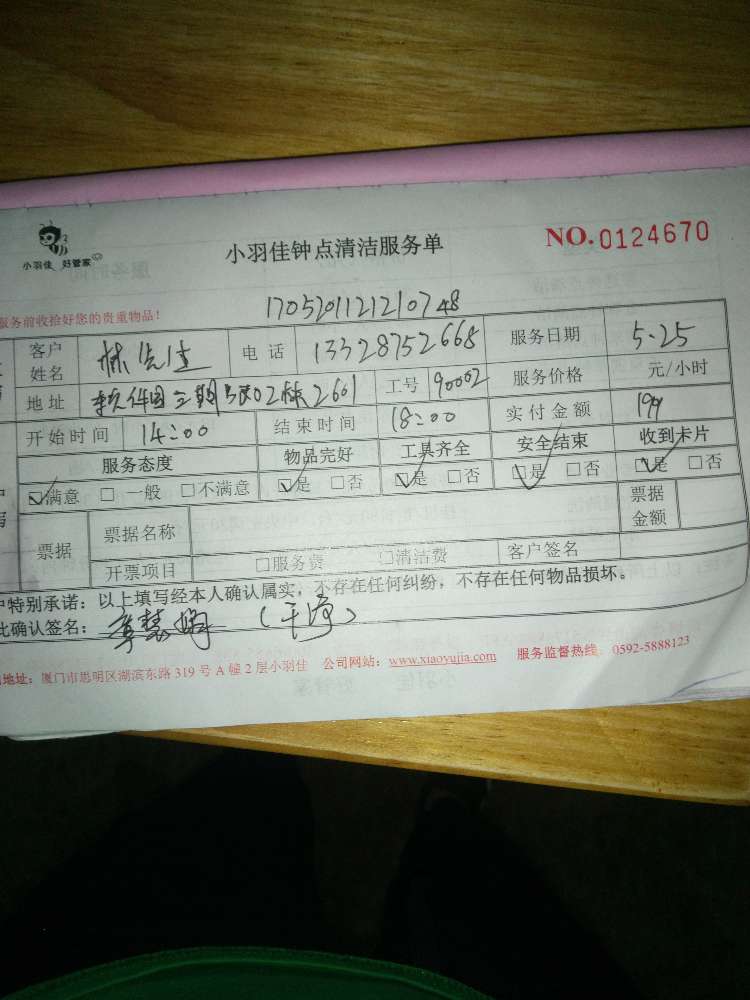 小羽佳 好管家
小羽佳钟点清洁服务单
NO. 0124670
服务前收拾好您的贵重物品!
17052011212107 48
客户姓名 林先生 电话 13328752668 服务日期 5.25
地址 软件园三期 02栋2601 工号 90002 服务价格 元/小时
开始时间 14:00 结束时间 18:00 实付金额
服务态度 物品完好 工具齐全 安全结束 收到卡片
☑满意 □一般 □不满意 ☑是 □否 ☑是 □否 ☑是 □否 ☑是 □否
票据 票据名称 票据金额
开票项目 □服务费 □清洁费 客户签名
户特别承诺:以上填写经本人确认属实,不存在任何纠纷,不存在任何物品损坏。
此确认签名: 章慧娟 (干净)
地址:厦门市思明区湖滨东路 319 号 A 幢 2 层小羽佳 公司网站:www.xiaoyujia.com 服务监督热线:0592-5888123